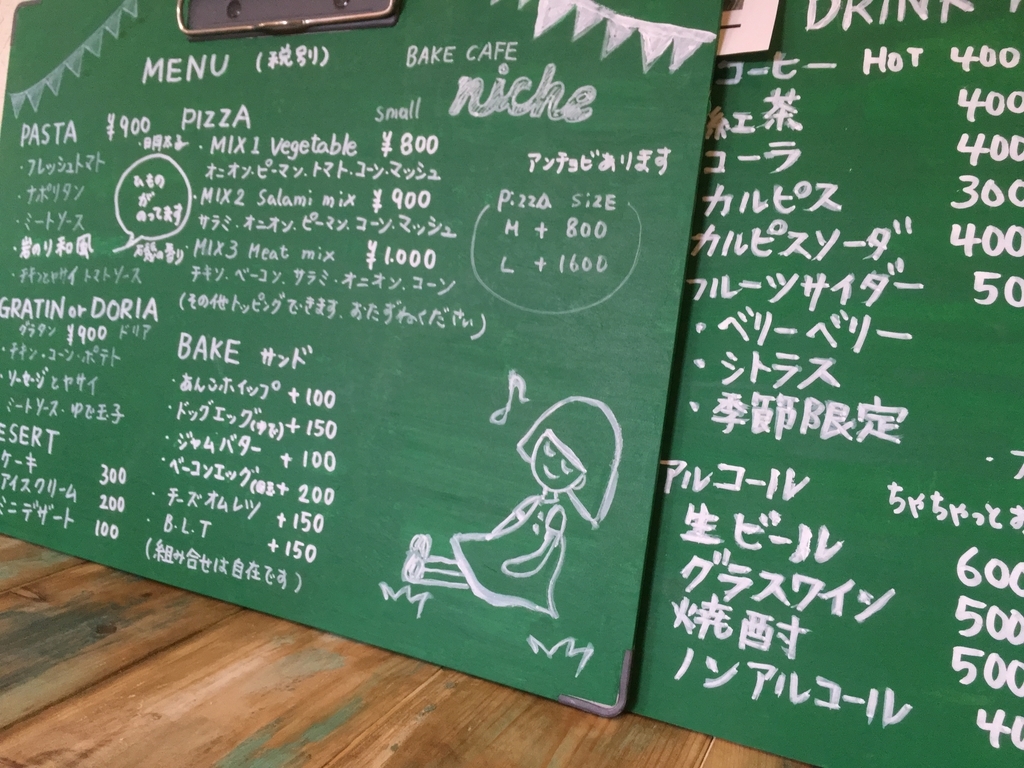 MENU (税別)
BAKE CAFE
niche
PASTA ¥900
・フレッシュトマト
・ナポリタン
・ミートソース
・岩のり和風
トマトソース
GRATIN or DORIA
グラタン ¥900 ドリア
・チキン・コーン・ポテト
・ソーセージとヤサイ
ミートソース・ゆで玉子
ESERT
ケーキ 300
アイスクリーム 200
ミニデザート 100
PIZZA small
・MIX1 Vegetable ¥800
オニオン・ピーマン・トマト・コーン・マッシュ
・MIX2 Salami mix ¥900
サラミ・オニオン・ピーマン・コーン・マッシュ
・MIX3 Meat mix ¥1.000
チキン・ベーコン・サラミ・オニオン・コーン
(その他トッピングできます。おたずねください)
アンチョビあります
Pizza SIZE
M + 800
L + 1600
BAKE サンド
・あんこホイップ +100
・ドッグエッグ(ゆで)+150
・ジャムバター +100
・ベーコンエッグ + 200
・チーズオムレツ +150
・B.L.T +150
(組み合せは自在です)
DRINK
コーヒー HOT 400
紅茶 400
コーラ 400
カルピス 300
カルピスソーダ 400
フルーツサイダー 50
・ベリーベリー
・シトラス
・季節限定
アルコール
ちゃちゃっとお
生ビール 600
グラスワイン 500
焼酎 500
ノンアルコール 40